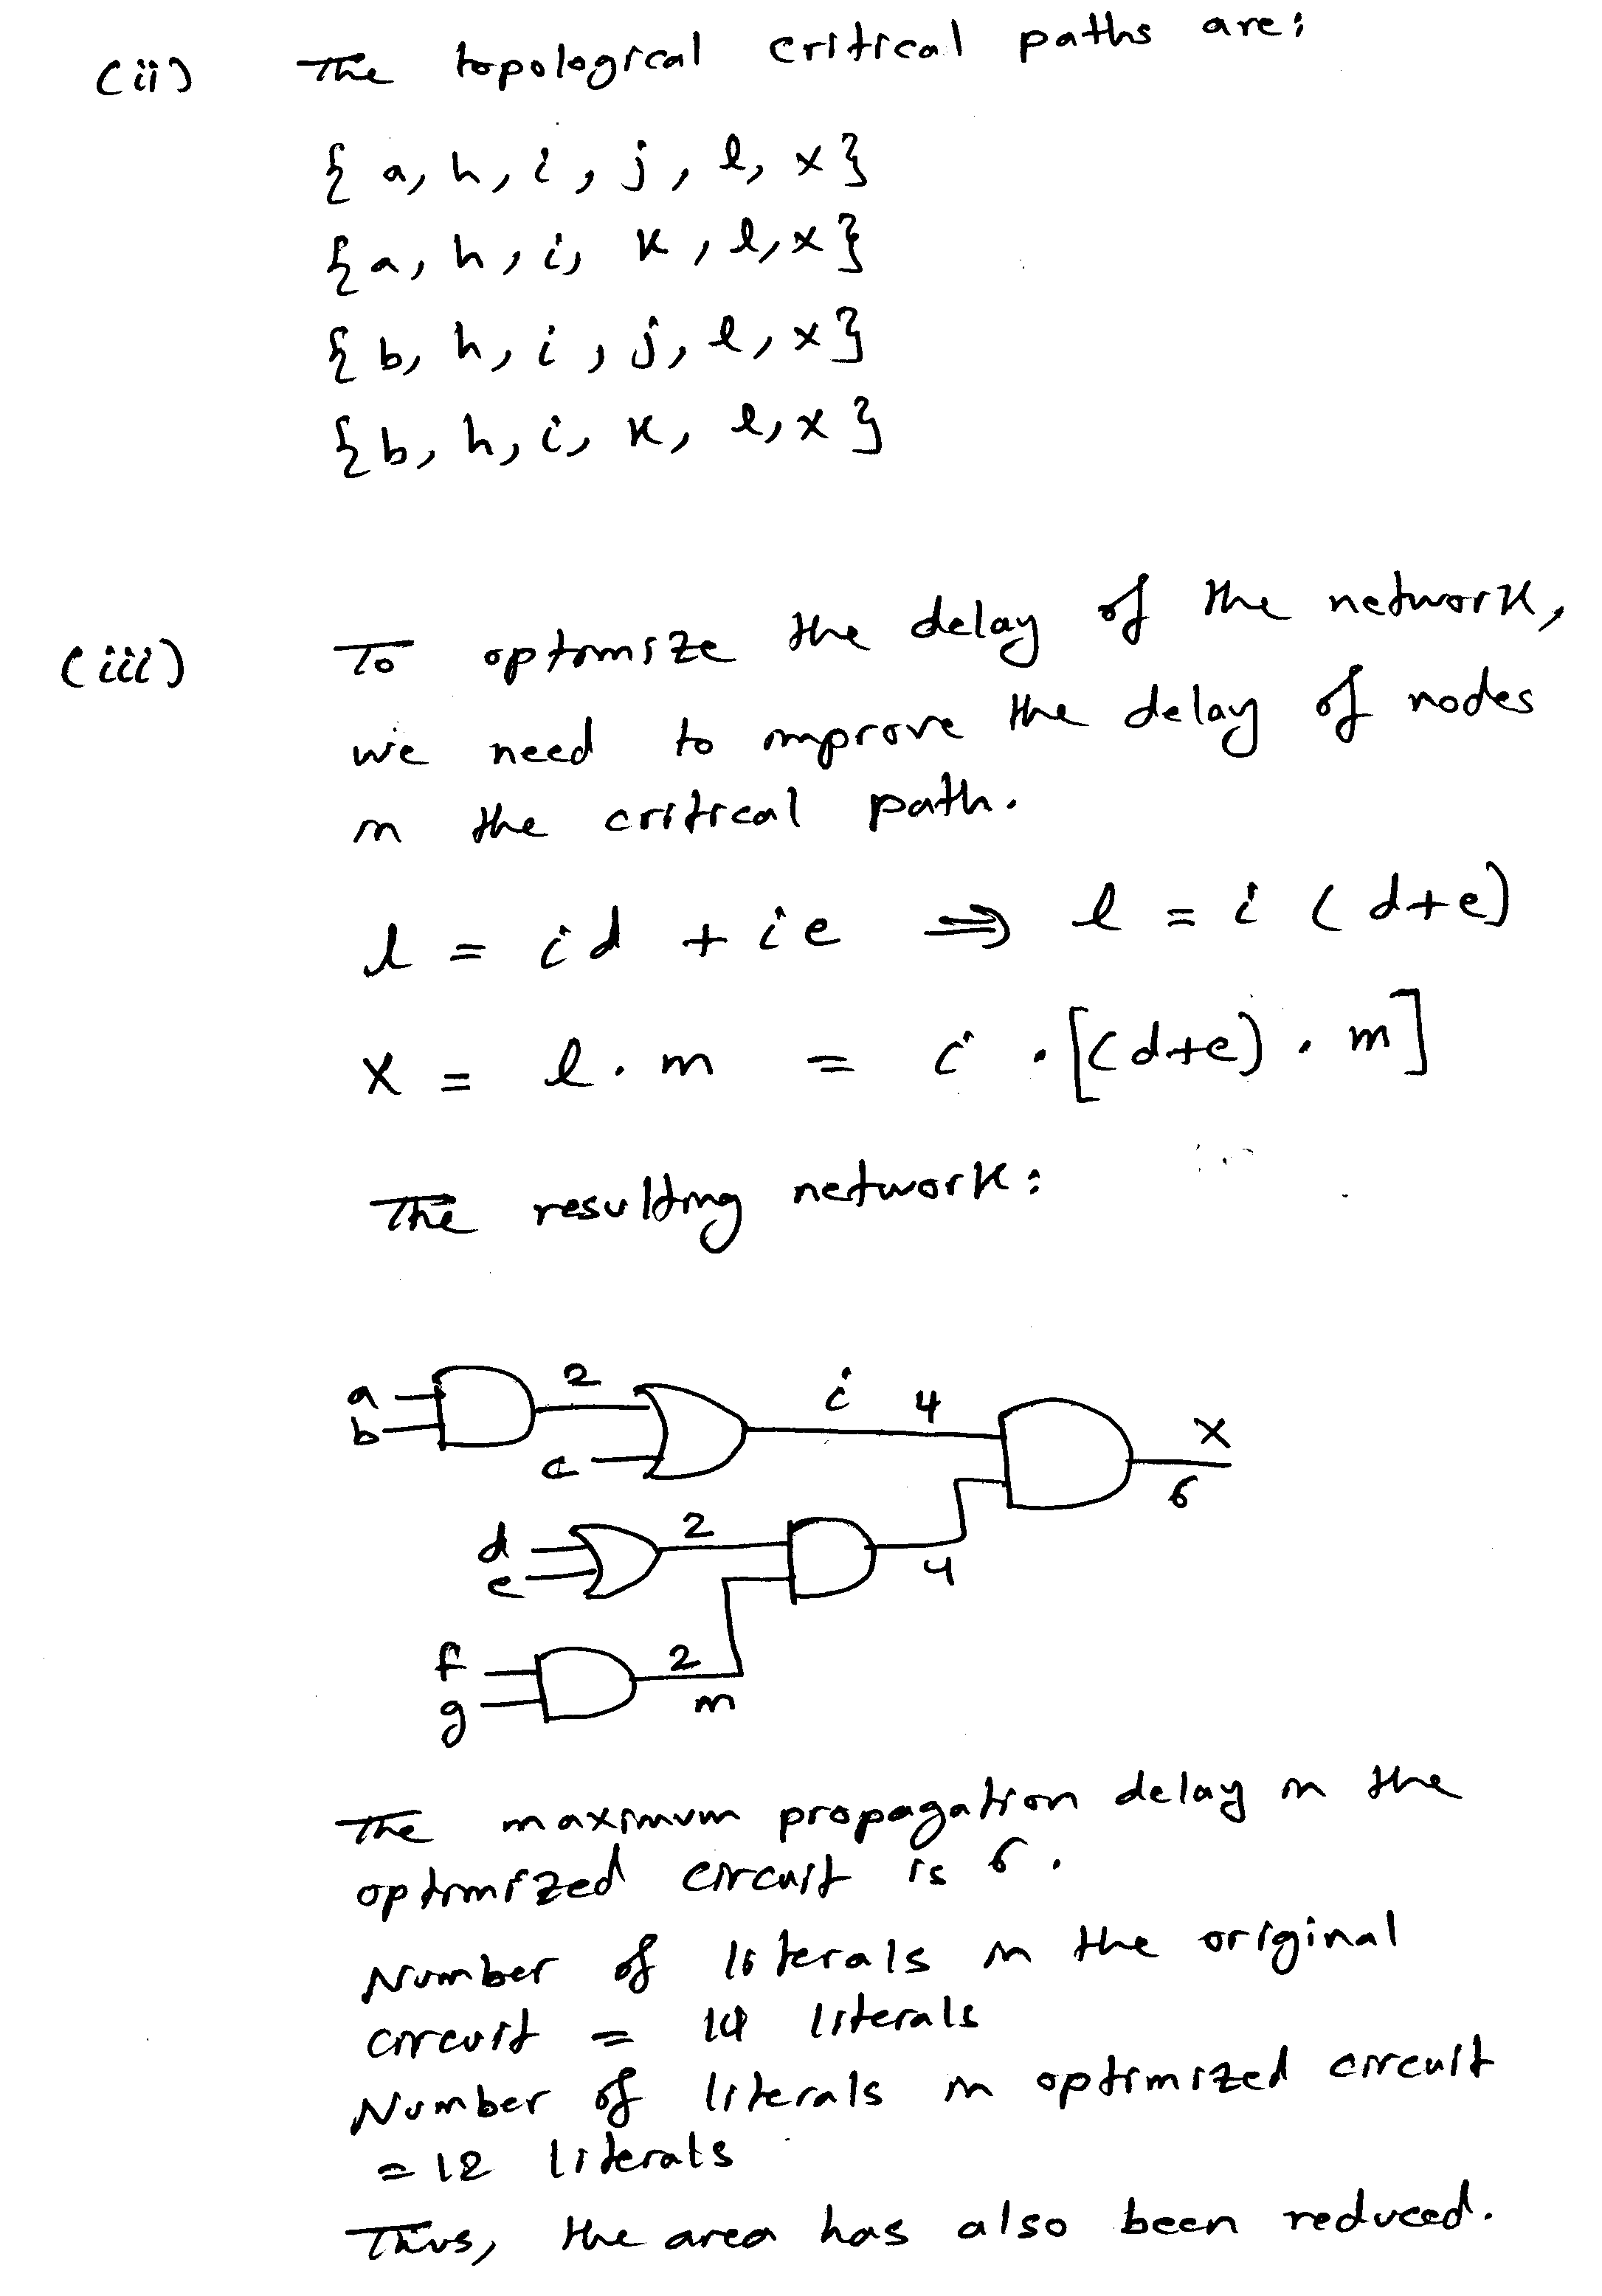 (ii) The topological critical paths are:
{ a, h, i, j, l, x}
{a, h, i, k, l, x}
{ b, h, i, j, l, x}
{ b, h, i, k, l, x }
(iii) To optimize the delay of the network,
we need to improve the delay of nodes
in the critical path.
l = id + ie ⇒ l = i (d+e)
x = l . m = i . [(d+e) . m]
The resulting network:
a 2 i 4 x
b
c 6
d 2
e 4
f 2
g m
The maximum propagation delay in the
optimized circuit is 6.
Number of literals in the original
circuit = 14 literals
Number of literals in optimized circuit
= 12 literals
Thus, the area has also been reduced.